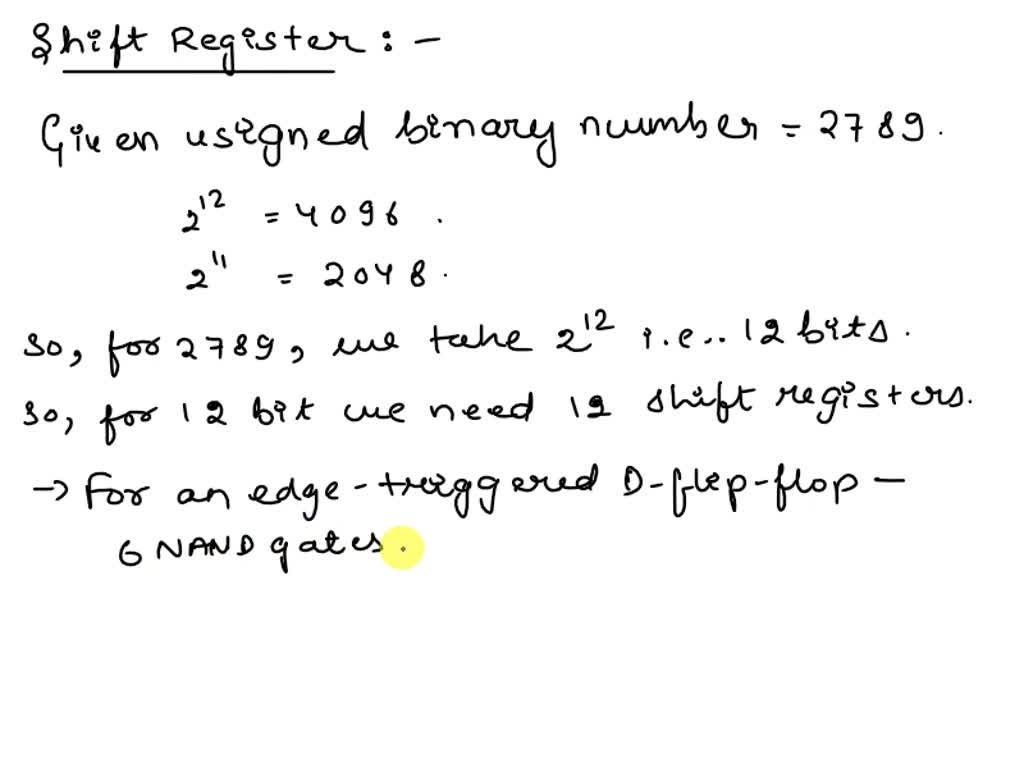 Shift Register : -
Given usigned binary number = 2789.
2^12 = 4096 .
2^11 = 2048 .
So, for 2789, we take 2^12 i.e.. 12 bits.
So, for 12 bit we need 12 shift registers.
→ For an edge-triggered D-flip-flop -
6 NAND gates.